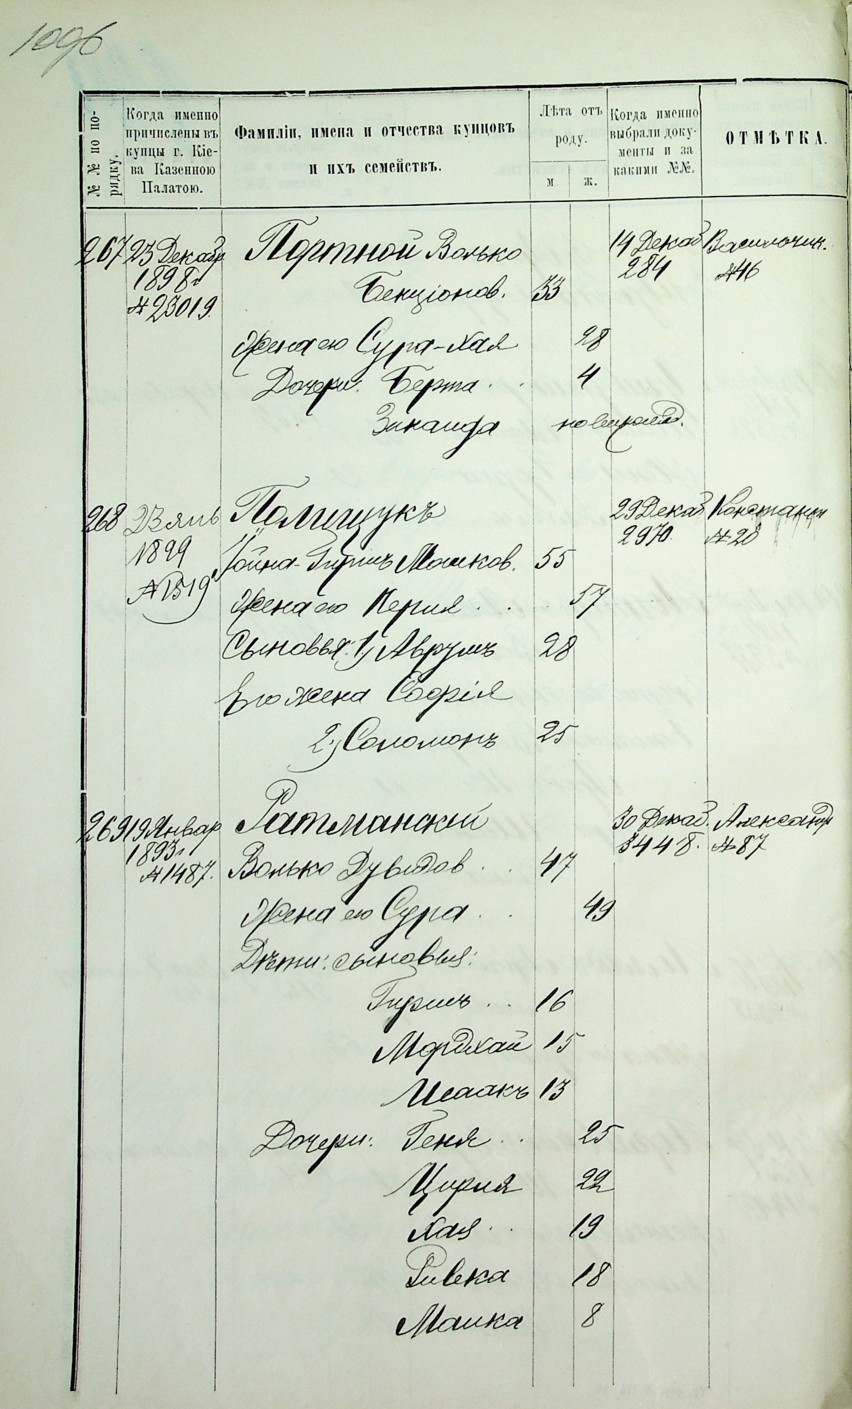 1096
№ № по по-
рядку.
Когда именно
причислены въ
купцы г. Кіе-
ва Казенною
Палатою.
Фамиліи, имена и отчества купцовъ
и ихъ семействъ.
Лѣта отъ
роду.
м
ж.
Когда именно
выбрали доку-
менты и за
какими №№.
ОТМѢТКА.
267 23 Декабр Портной Волько 14 Декаб Васильочик.
1898 г 284 №46
№23019 Бенціонов. 33
Жена его Сура-Хая 28
Дочери: Берта 4
Зинаида новорожд.
268 23 янв Полищукъ 29 Декаб Констант
1899 2970 №28
№1519 Іойна-Гиршъ Мошков. 55
Жена его Перля 57
Сыновья: 1) Аврумъ 28
Его жена Софія
2) Соломонъ 25
269 19 Январ Ратманскій 30 Декаб. Александр
1893 г 3448. №87
№1487. Волько Дувидов 47
Жена его Сура 49
Дѣти: сыновья:
Гиршъ 16
Мордхай 15
Исаакъ 13
Дочери: Геня 25
Цирля 22
Хая 19
Ривека 18
Маика 8